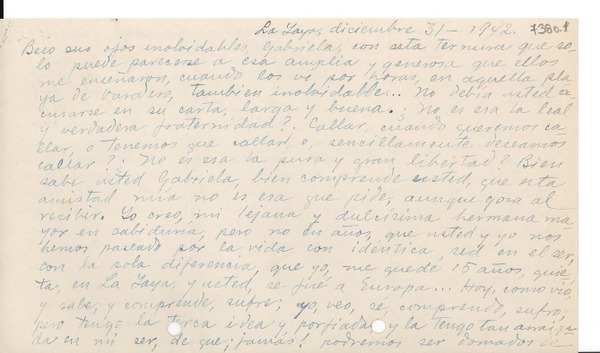 La Jaya, diciembre 31 - 1942. 738a.1
Beso sus ojos inolvidables, Gabriela, con esta ternura que so-
lo puede parecerse a esa amplia y generosa que ellos
me enseñaron, cuando los vi, por horas, en aquella pla
ya de Varadero, tambien inolvidable... No debía usted a-
cusarse en su carta, larga y buena. ¿No es esa la leal
y verdadera fraternidad? ¿Callar, cuando queremos ca-
llar, o tenemos que callar, o, sencillamente deceamos
callar? ¿No es esa la pura y gran libertad? Bien
sabe usted Gabriela, bien comprende usted, que esta
amistad mía no es esa que pide, aunque goza al
recibir. Lo creo, mi lejana y dulcísima hermana ma-
yor en sabiduría, pero no en años, que usted y yo nos
hemos paseado por la vida con idéntica sed en el ser,
con la sola diferencia, que yo, me quedé 15 años, quie-
ta, en La Jaya, y usted, se fué a Europa... Hoy, como vió,
y sabe, y comprende, sufre; yo, veo, sé, comprendo, sufro,
pero tengo la terca idea y porfiada y la tengo tan arraiga
da en mi ser, de que ¡jamás! podremos ser domados de